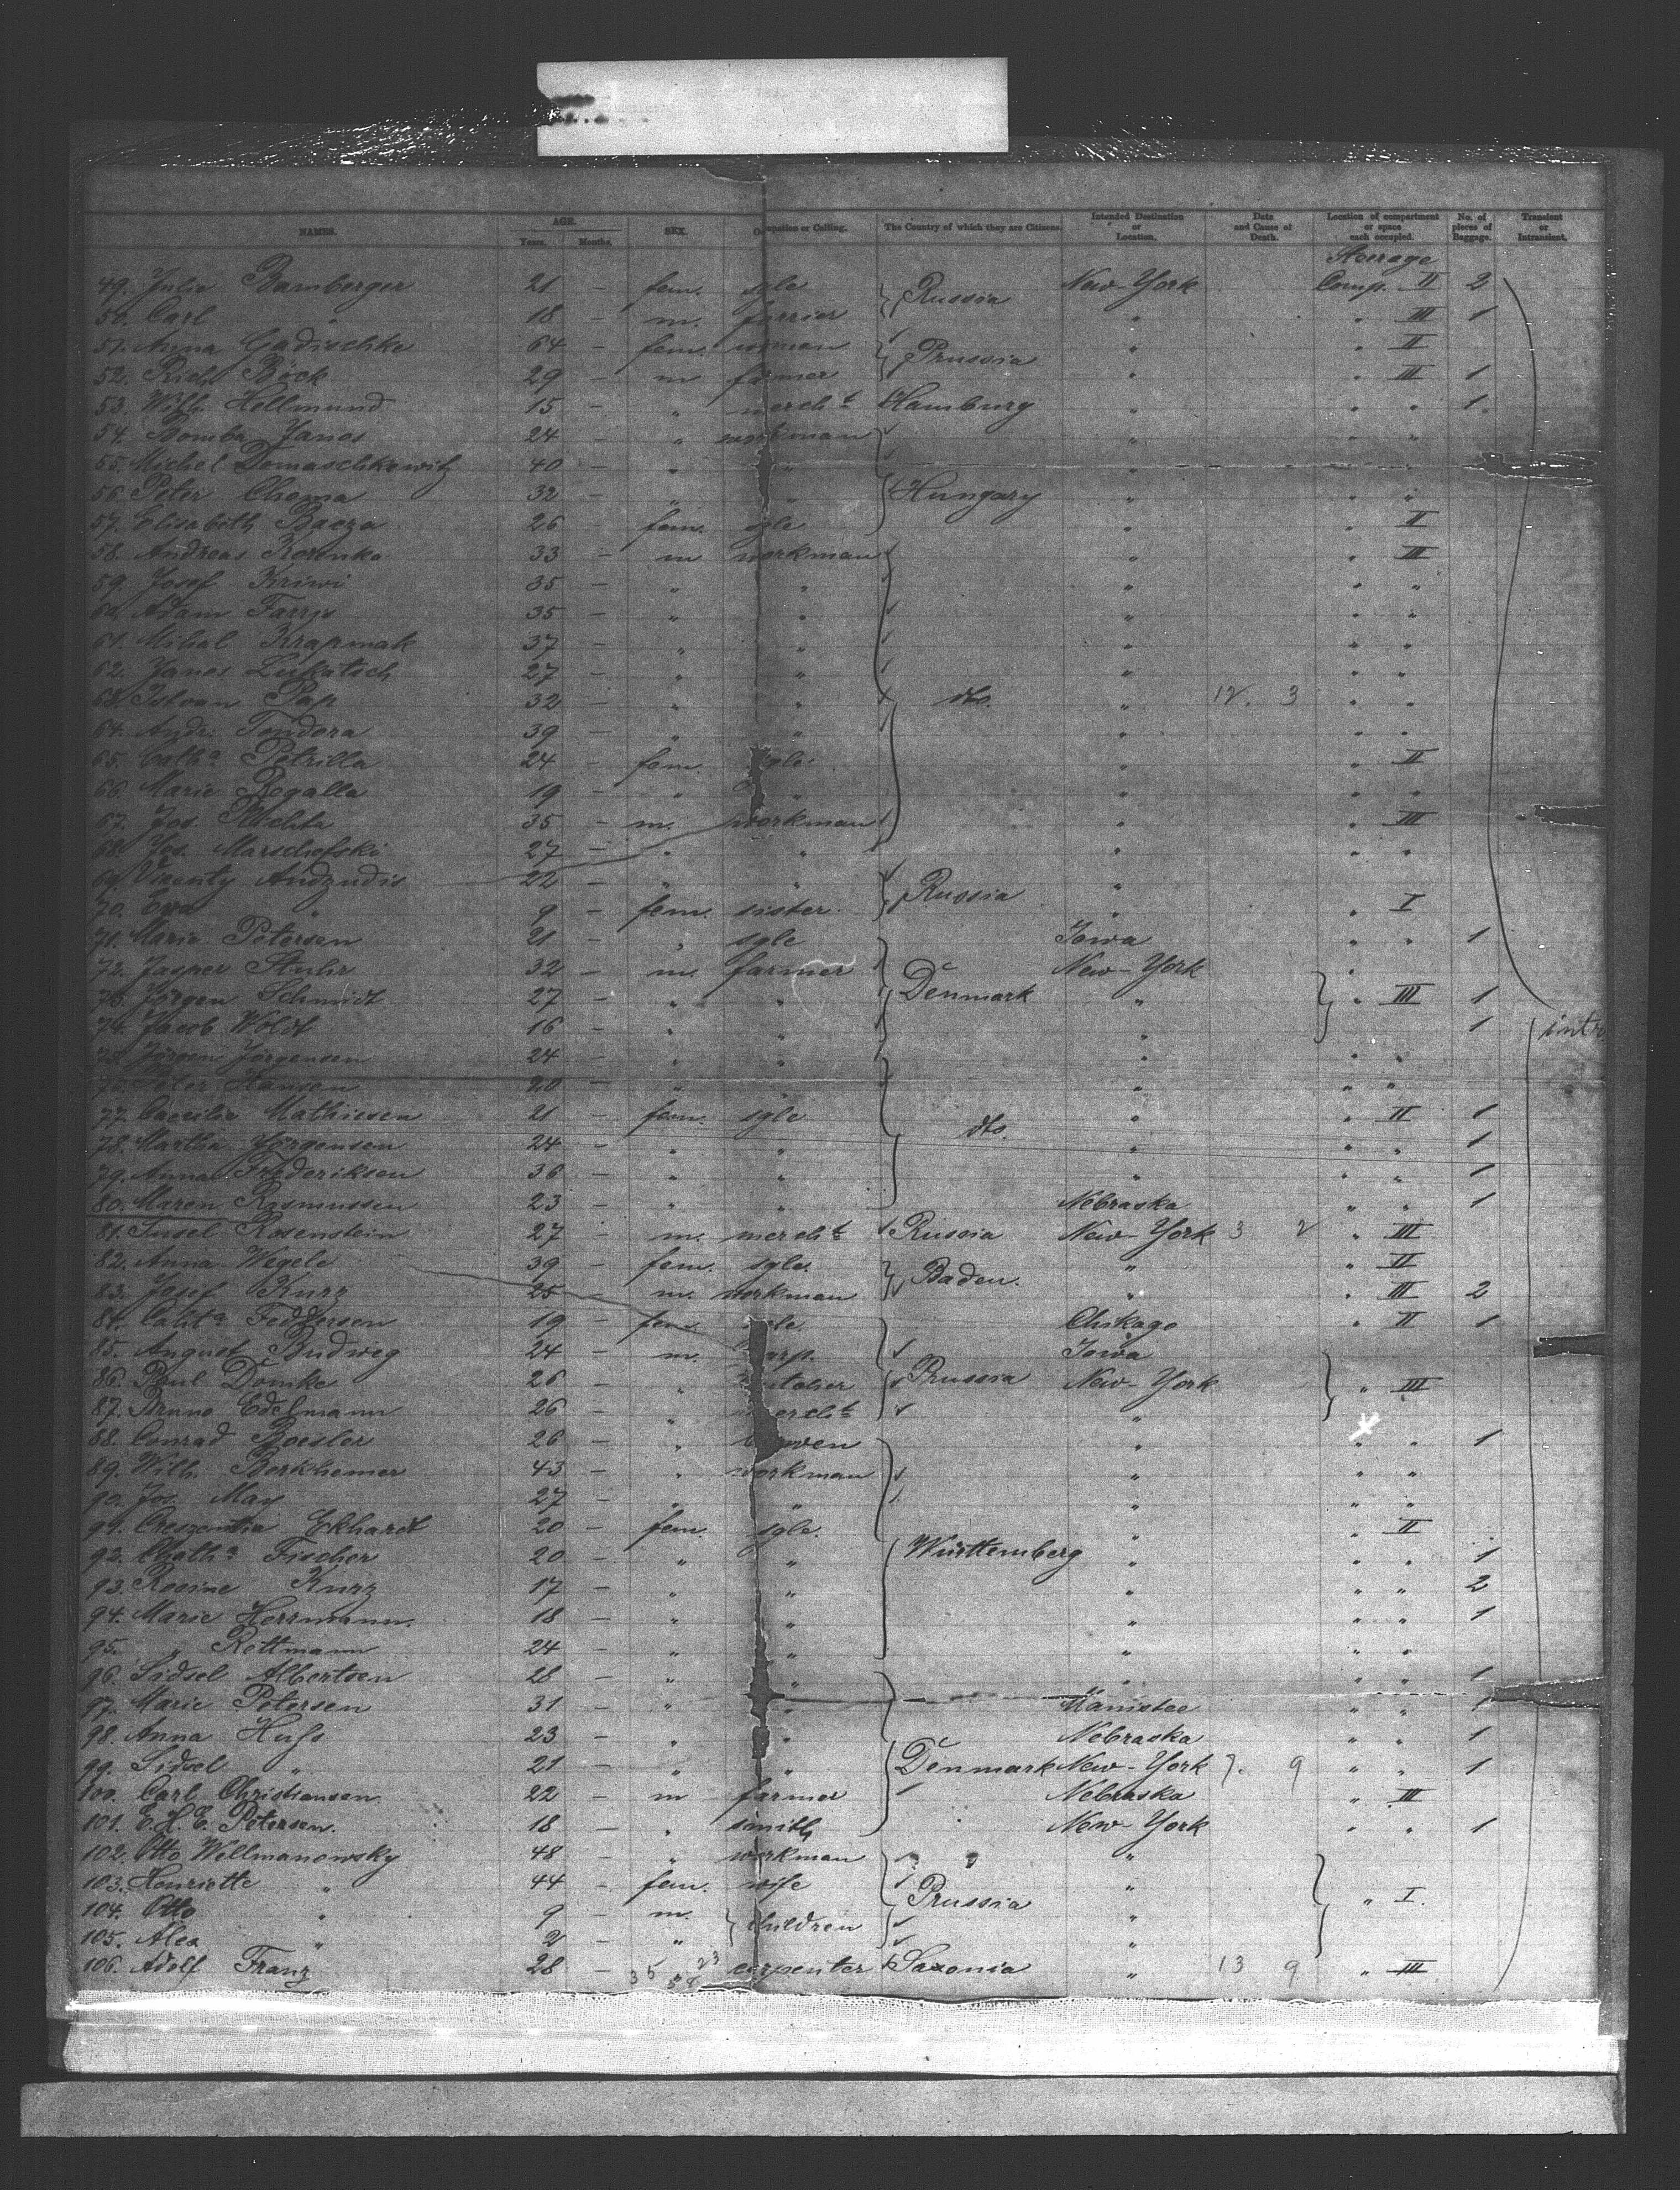 NAMES. AGE. SEX. Occupation or Calling. The Country of which they are Citizens. Intended Destination or Location. Date and Cause of Death. Location of compartment or space each occupied. No. of pieces of Baggage. Transient or Intransient.
Years. Months.
Steerage
49. Julie Bamberger 21 — fem. sgle Russia New-York Comp. II 2
50. Carl " 18 — m. farrier " " III 1
51. Anna Gadischke 64 — fem. woman Prussia " " II
52. Rich. Böck 29 — m farmer " " III 1
53. Wilh. Hellmund 15 — " mercht Hamburg " " " 1.
54. Bomba Janos 24 — " workman " " "
55. Michel Domaschkewitz 40 — " " " "
56. Peter Choma 32 — " " Hungary " " "
57. Elisabeth Bacza 26 — fem. sgle " " II
58. Andreas Korinka 33 — m workman " " III
59. Josef Kriwi 35 — " " " " "
60. Adam Farrys 35 — " " " " "
61. Mihal Krapmak 37 — " " " " "
62. Janos Lukatsch 27 — " " " " "
63. Istvan Pap 32 — " " dto. " 12. 3 " "
64. Andr. Tondora 39 — " " " " "
65. Catha Petrilla 24 — fem. sgle. " " II
66. Marie Regalla 19 — " " " " "
67. Jos. 35 — m. workman " " III
68. Jos. Marschofski 27 — " " " " "
69. Vicenty Andzudis 22 — " " Russia "
70. Eva " 9 — fem. sister. " " I
71. Marie Petersen 21 — " sgle Iowa " " 1
72. Jasper Stuhr 32 — m. farmer New-York "
73. Jörgen Schmidt 27 — " " Denmark " " III 1
74. Jacob Woldt 16 — " " " 1 intr
75. Jörgen Jörgensen 24 — " " " " "
76. Peter Hansen 20 — " " " " "
77. Caecilie Mathiesen 21 — fem. sgle " " II 1
78. Martha Jörgensen 24 — " " dto. " " " 1
79. Anna Frederiksen 36 — " " " " " 1
80. Maren Rasmussen 23 — " " Nebraska " " 1
81. Jusel Rosenstein 27 — m. mercht Russia New-York 3 2 " III
82. Anna Wegele 39 — fem. sgle. Baden. " " II
83. Josef Kurz 25 — m. workman " " III 2
84. Catha Feddersen 19 — fem. sgle. Chikago " II 1
85. August Budweg 24 — m. carp. Iowa
86. Paul Domke 26 — " butcher Prussia New-York " III
87. Bruno Edelmann 26 — " mercht "
88. Conrad Boesler 26 — " " " " 1
89. Wilh. Berkhemer 43 — " workman " " "
90. Jos. May 27 — " " " " "
91. Creszentia Ekhardt 20 — fem. sgle. " " II
92. Chatha Fischer 20 — " " Württemberg " " " 1
93. Rosine Kurz 17 — " " " " " 2
94. Marie Herrmann. 18 — " " " " " 1
95. " Rettmann 24 — " " " " "
96. Sidsel Albertsen 28 — " " " " " 1
97. Marie Petersen 31 — " " Manistee " " 1
98. Anna Huss 23 — " " Nebraska " " 1
99. Sidsel " 21 — " " Denmark New-York 7. 9 " " 1
100. Carl Christiansen. 22 — m farmer Nebraska " III
101. E. H. E. Petersen. 18 — " smith New-York " " 1
102. Otto Wellmanowsky 48 — " workman "
103. Henriette " 44 — fem. wife Prussia " " I.
104. Otto " 9 — m. children "
105. Alex " 2 — " "
106. Adolf Franz 28 — carpenter Saxonia " 13 9 " III
35 58 23